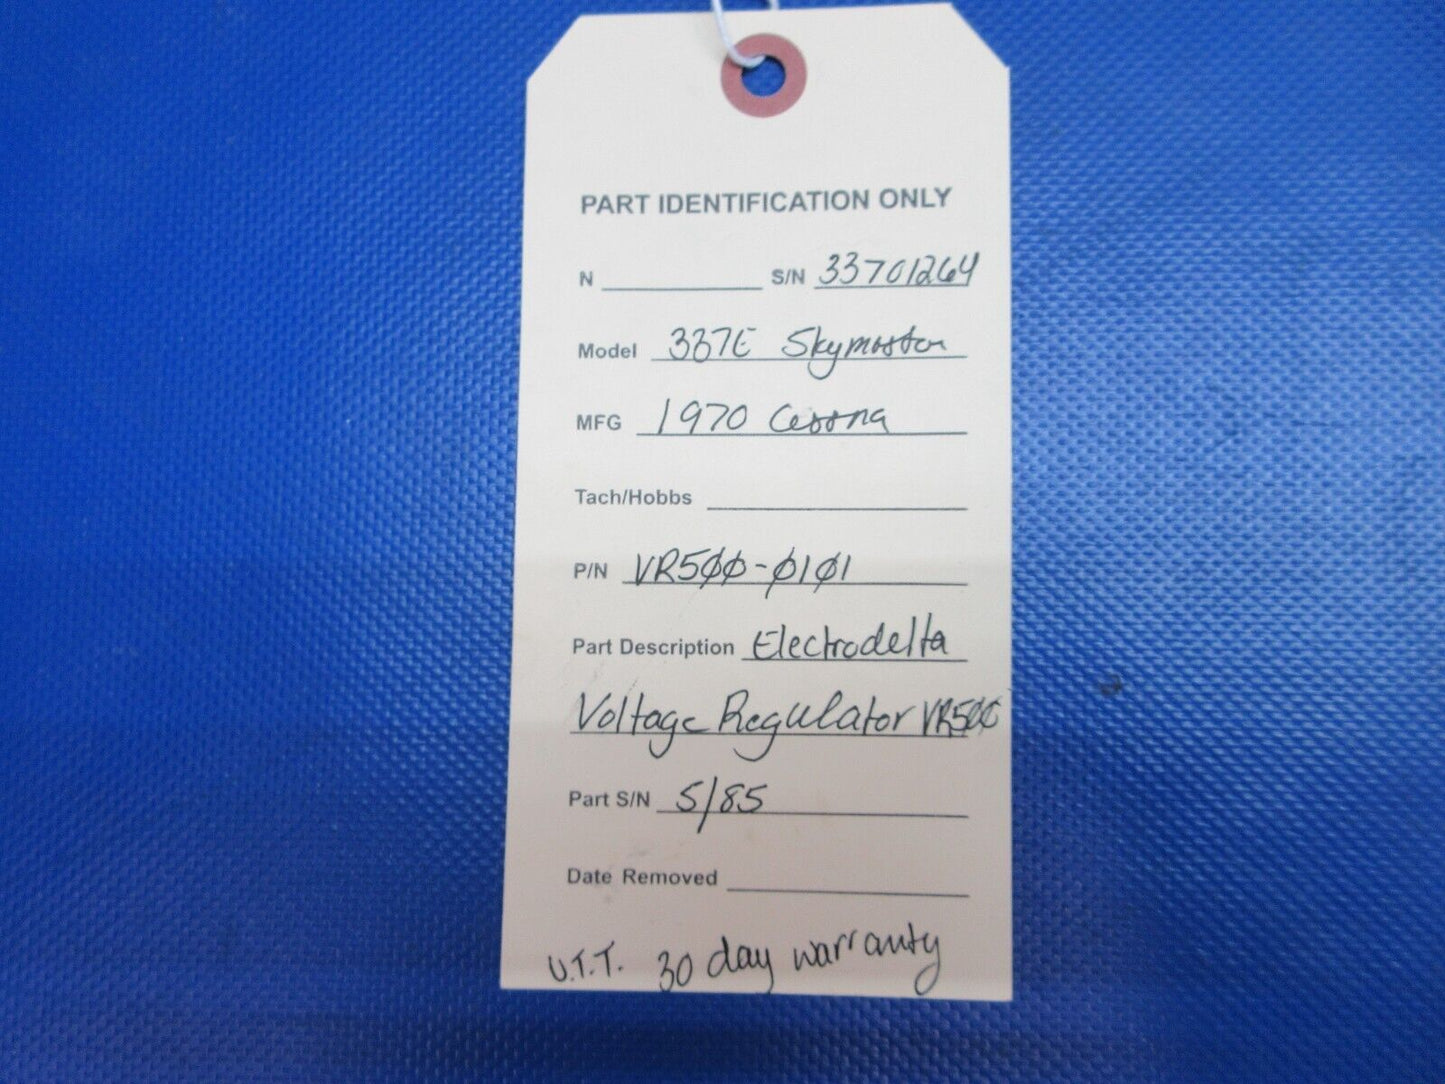 PART IDENTIFICATION ONLY
N S/N 33701264
Model 337E Skymaster
MFG 1970 Cessna
Tach/Hobbs
P/N VR5ØØ-Ø1Ø1
Part Description Electrodelta
Voltage Regulator VR5ØØ
Part S/N 5/85
Date Removed
U.T.T. 30 day warranty